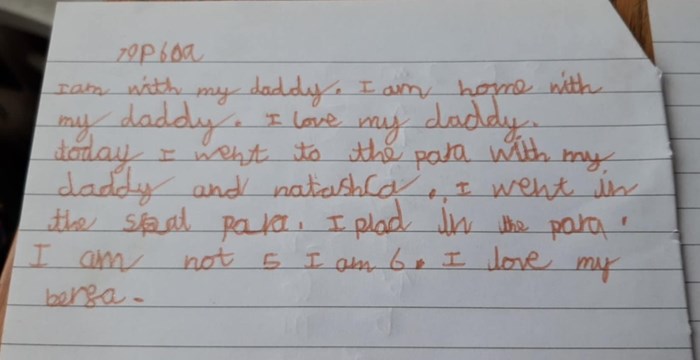 I am with my daddy. I am home with
my daddy. I love my daddy.
today I went to the para with my
daddy and natasha. I went in
the para. I plad in the para.
I am not 5 I am 6. I love my
berga.